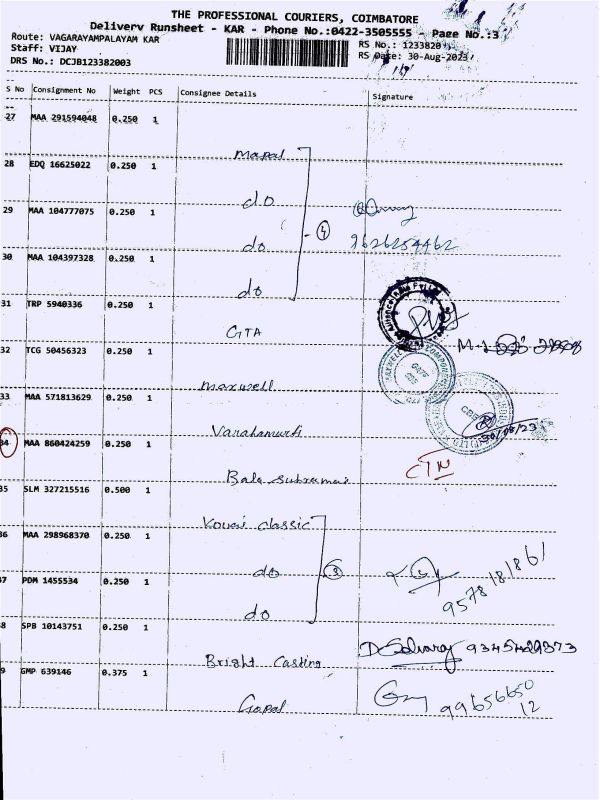 THE PROFESSIONAL COURIERS, COIMBATORE
Delivery Runsheet - KAR - Phone No.:0422-3505555 - Page No.:3
Route: VAGARAYAMPALAYAM KAR
RS No.: 1233820
Staff: VIJAY
RS Date: 30-Aug-2023
DRS No.: DCJB123382003
S No Consignment No Weight PCS Consignee Details Signature
27 MAA 291594048 0.250 1
Mapal
28 EDQ 16625022 0.250 1
do
29 MAA 104777075 0.250 1
do - 4
9626254462
30 MAA 104397328 0.250 1
do
31 TRP 5940336 0.250 1
GTA
32 TCG 50456323 0.250 1
Maxwell
33 MAA 571813629 0.250 1
Varahamurti
30/08/23
34 MAA 860424259 0.250 1
Bala Subramani
CTN
35 SLM 327215516 0.500 1
Kovai Classic
36 MAA 298968370 0.250 1
do 3
9578181861
37 PDM 1455534 0.250 1
do
38 SPB 10143751 0.250 1
Bright Casting
D Selvaraj 9345429373
39 GMP 639146 0.375 1
Gopal
99656650
12